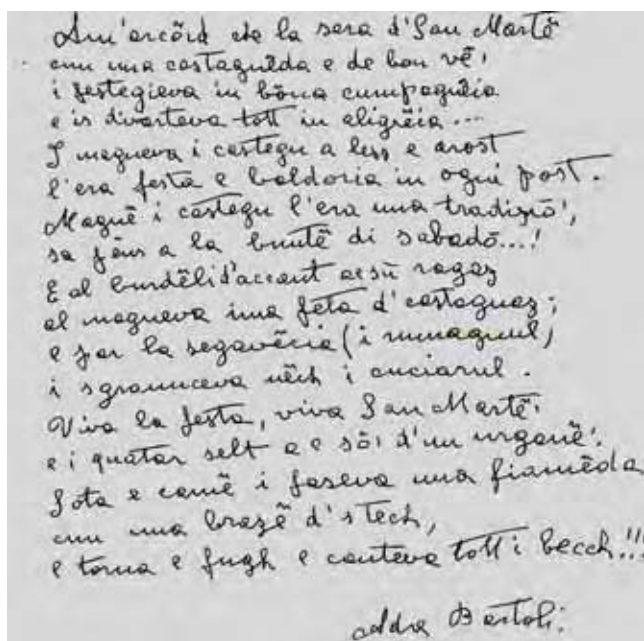 Am'arcôrd che la sera d'San Martẽ
cun una castagnẽda e de bon vẽ,
i festegieva in bôna cumpagnẽia
e is divarteva tott in aligrẽia ....
I magneva i castegn a less e arost
l'era festa e baldoria in ogni post.
Magnẽ i castegn l'era una tradiziõ,
sa fëns a la buntẽ di sabadõ...!
E al burdëli d'accant ae sù ragaz
al magneva una feta d'castagnaz;
e par la segavëcia (i rumagnul)
i sgranuceva nẽch i anciarul.
Viva la festa, viva San Martẽ,
e i quatar selt a e sõ, d'un urganẽ!
Sota e camẽ i faseva una fiamẽda
cun una brazẽ d'stech,
e torna e fugh e canteva tott i becch!!!
Adra Bartoli.